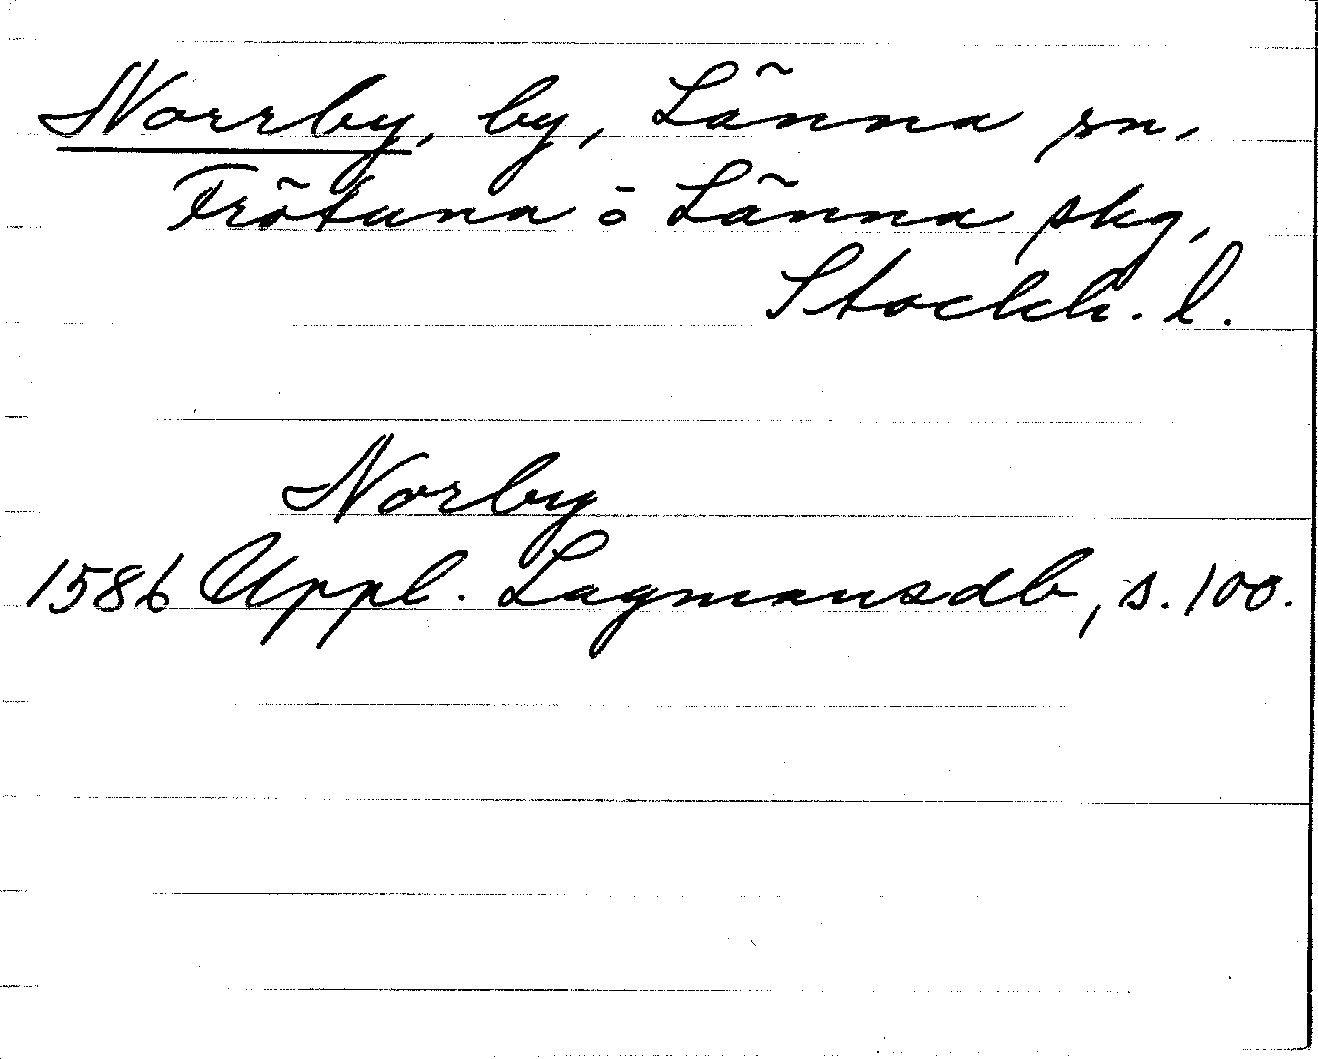 Norrby, by, Länna sn,
Frötuna o Länna skg,
Stockh. l.
Norby
1586 Uppl. Lagmansdb, s. 100.